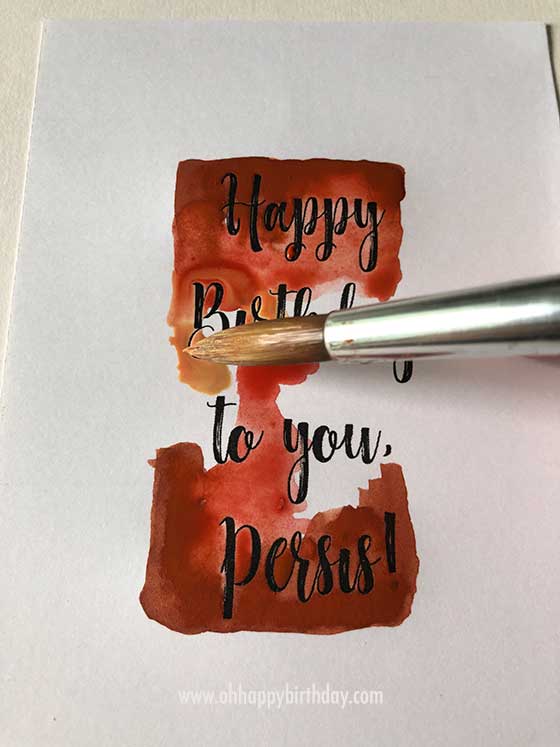 Happy
Birthday
to you,
Persis!
www.ohhappybirthday.com